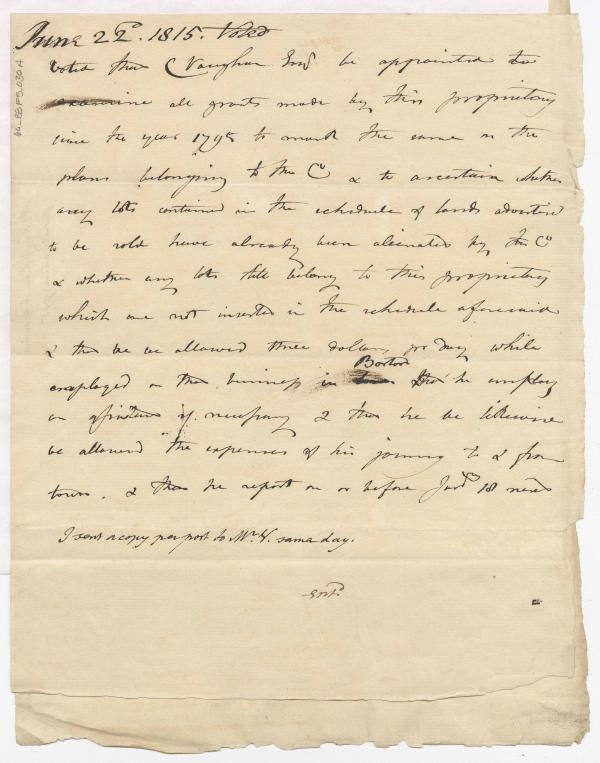 June 22d. 1815. Voted
Voted that C Vaughan Esqr be appointed to
examine all grants made by this propriety
since the year 1795 to mark the same on the
plans belonging to the Co & to ascertain whether
any lots contained in the schedule of lands advertised
to be sold have already been alienated by the Co
& whether any lots still belong to this propriety
which are not inserted in the schedule aforesaid
& that he be allowed three dollars per day while
employed on this business in Boston that he employ
an assistant if necessary & that he be likewise
be allowed the expenses of his journey to & from
town. & that he report on or before 18 next
I sent a copy per post to Mr. V. same day.
entd.
66-88F5.030A